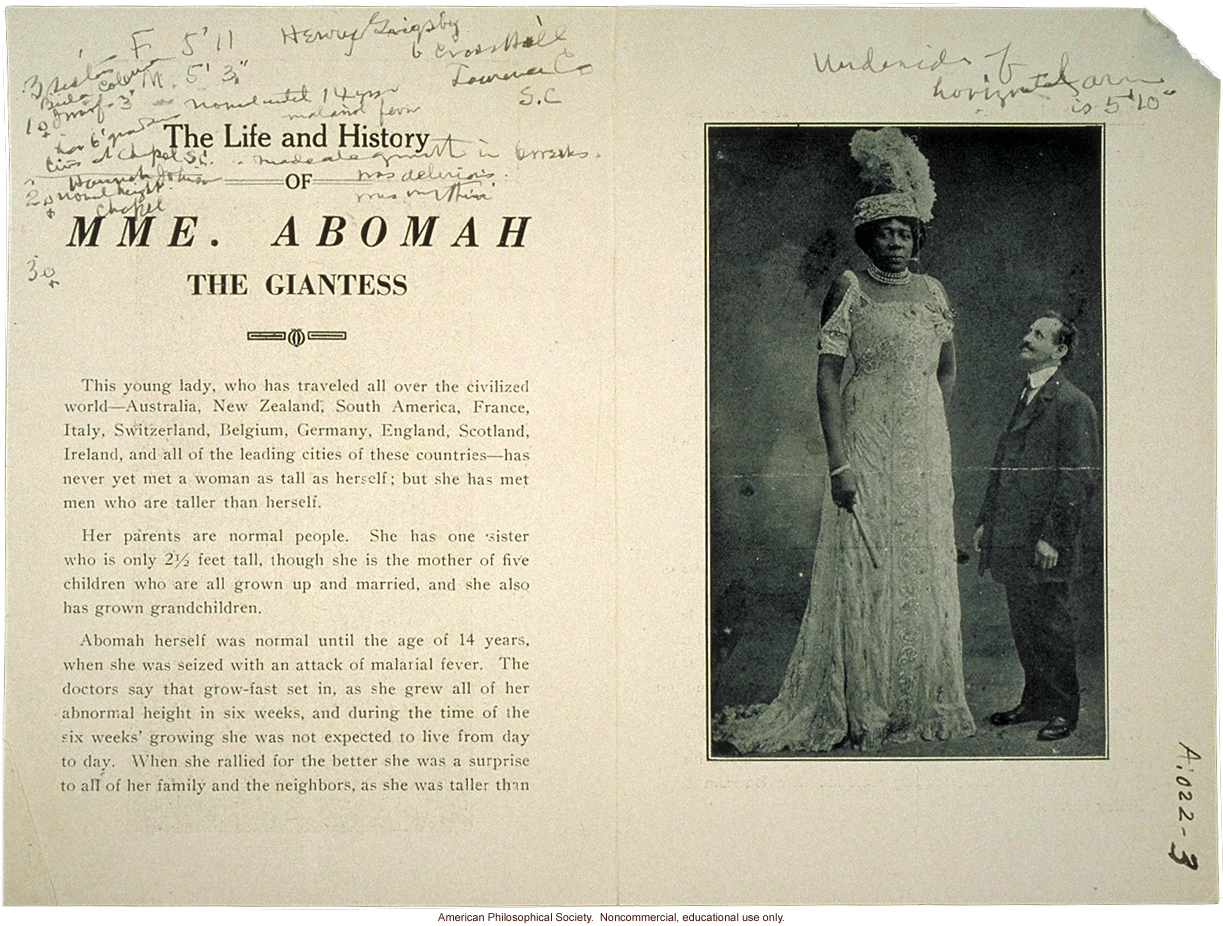 F. 5' 11 Henry Grigsby
M. 5' 3" Cross Hill
Dwarf 3' Normal until 14 yrs
malarial fever
S.C
The Life and History
was delirious.
OF
Hannah
normal height
Chapel
MME. ABOMAH
THE GIANTESS
This young lady, who has traveled all over the civilized
world—Australia, New Zealand, South America, France,
Italy, Switzerland, Belgium, Germany, England, Scotland,
Ireland, and all of the leading cities of these countries—has
never yet met a woman as tall as herself; but she has met
men who are taller than herself.
Her parents are normal people. She has one sister
who is only 2½ feet tall, though she is the mother of five
children who are all grown up and married, and she also
has grown grandchildren.
Abomah herself was normal until the age of 14 years,
when she was seized with an attack of malarial fever. The
doctors say that grow-fast set in, as she grew all of her
abnormal height in six weeks, and during the time of the
six weeks' growing she was not expected to live from day
to day. When she rallied for the better she was a surprise
to all of her family and the neighbors, as she was taller than
Underside of
horizontal arm
is 5'10"
A:022-3
American Philosophical Society. Noncommercial, educational use only.